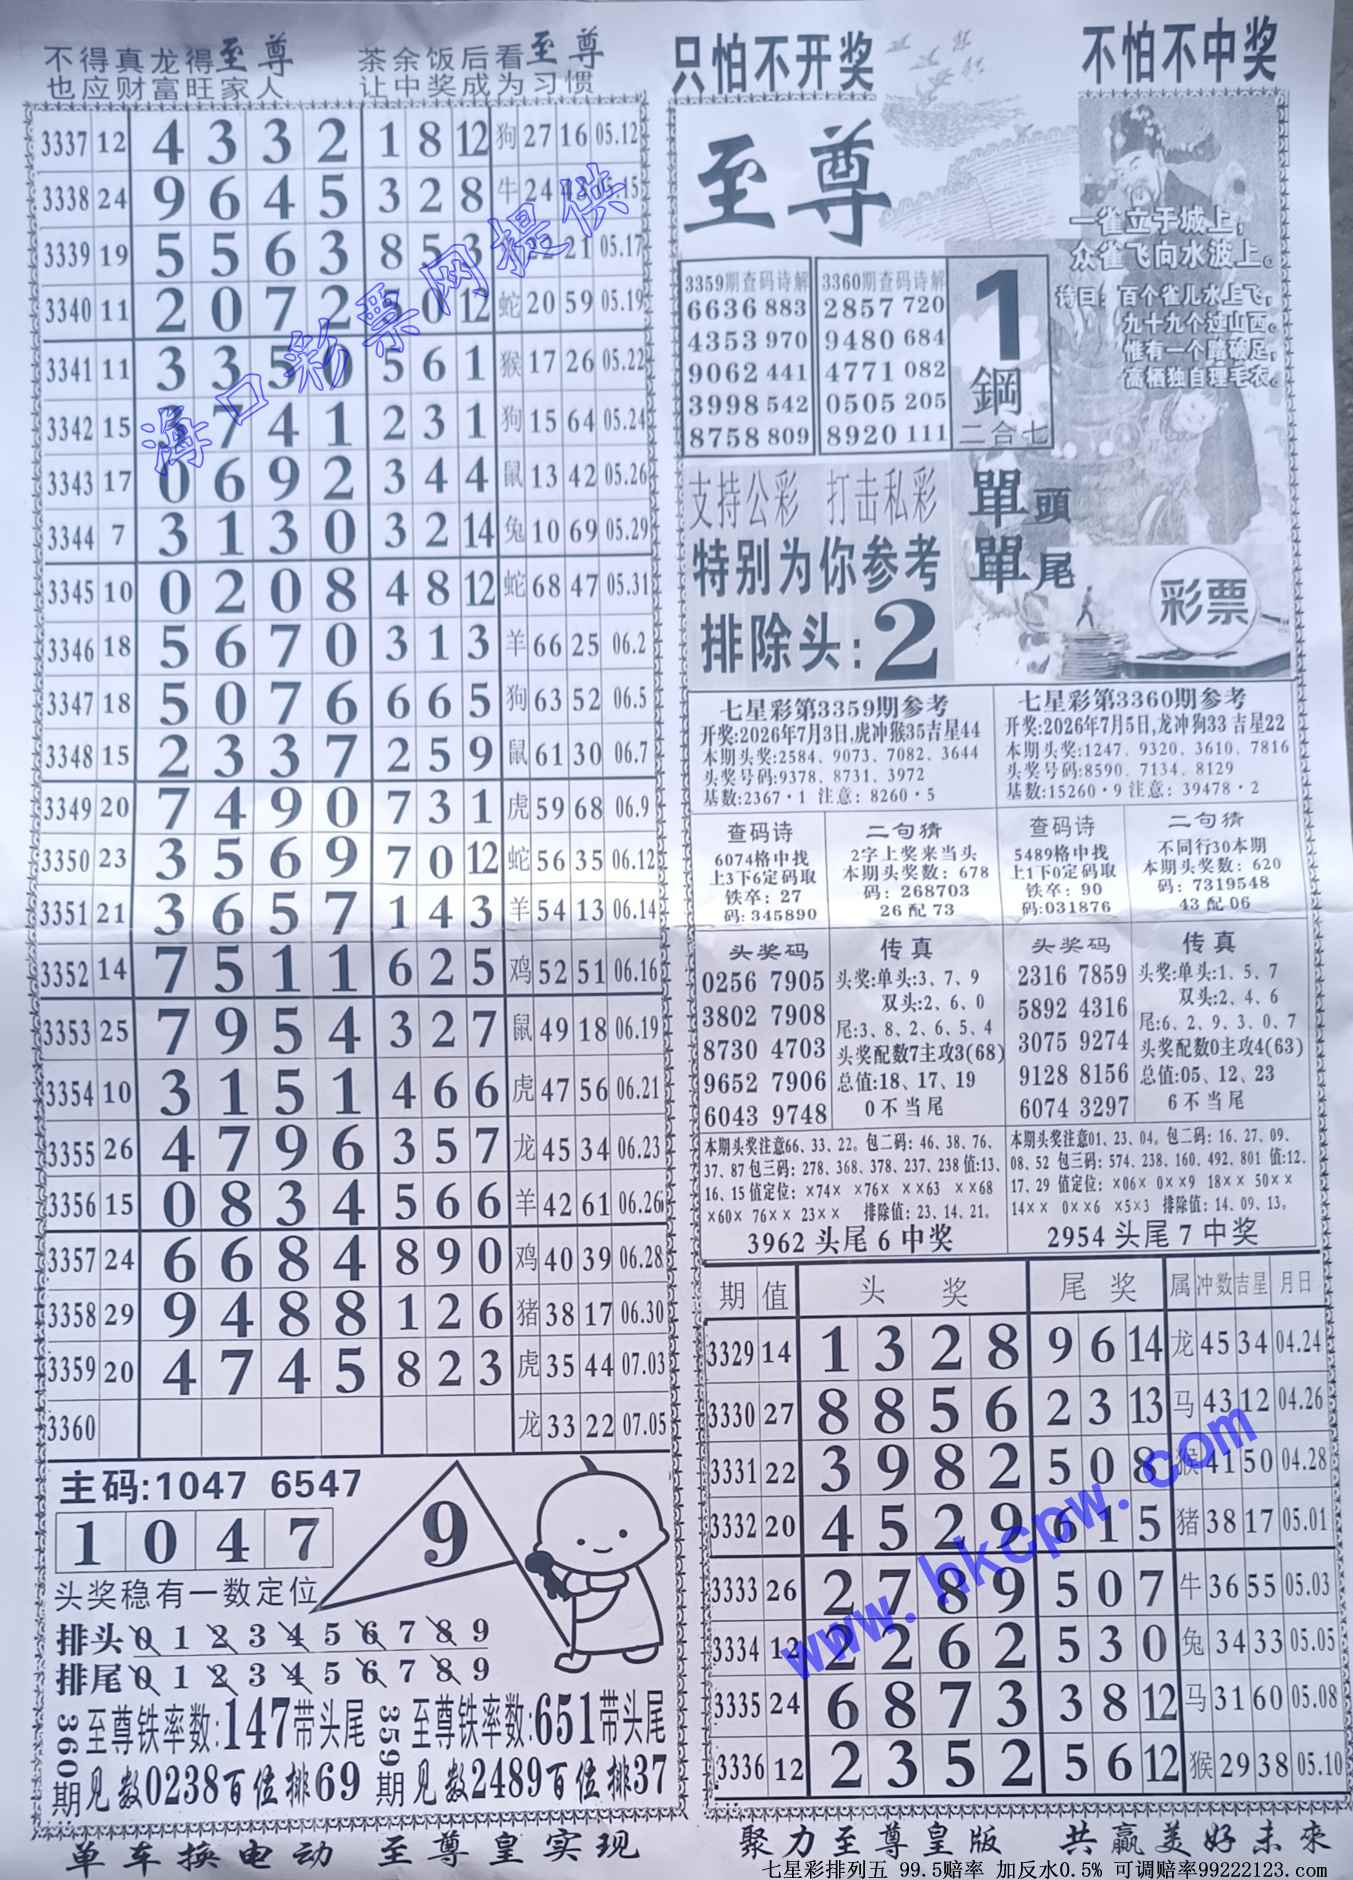 不得真龙得至尊
也应财富旺家人
茶余饭后看至尊
让中奖成为习惯
3337 12 4 3 3 2 1 8 12 狗 27 16 05.12
3338 24 9 6 4 5 3 2 8 牛 24
3339 19 5 5 6 3 8 5 3 21 05.17
3340 11 2 0 7 2 0 12 蛇 20 59 05.19
3341 11 3 3 5 0 5 6 1 猴 17 26 05.22
3342 15 3 7 4 1 2 3 1 狗 15 64 05.24
3343 17 0 6 9 2 3 4 4 鼠 13 42 05.26
3344 7 3 1 3 0 3 2 14 兔 10 69 05.29
3345 10 0 2 0 8 4 8 12 蛇 68 47 05.31
3346 18 5 6 7 0 3 1 3 羊 66 25 06.2
3347 18 5 0 7 6 6 6 5 狗 63 52 06.5
3348 15 2 3 3 7 2 5 9 鼠 61 30 06.7
3349 20 7 4 9 0 7 3 1 虎 59 68 06.9
3350 23 3 5 6 9 7 0 12 蛇 56 35 06.12
3351 21 3 6 5 7 1 4 3 羊 54 13 06.14
3352 14 7 5 1 1 6 2 5 鸡 52 51 06.16
3353 25 7 9 5 4 3 2 7 鼠 49 18 06.19
3354 10 3 1 5 1 4 6 6 虎 47 56 06.21
3355 26 4 7 9 6 3 5 7 龙 45 34 06.23
3356 15 0 8 3 4 5 6 6 羊 42 61 06.26
3357 24 6 6 8 4 8 9 0 鸡 40 39 06.28
3358 29 9 4 8 8 1 2 6 猪 38 17 06.30
3359 20 4 7 4 5 8 2 3 虎 35 44 07.03
3360 龙 33 22 07.05
海口彩票网提供
主码:1047 6547
1 0 4 7
9
头奖稳有一数定位
排头 0 1 2 3 4 5 6 7 8 9
排尾 0 1 2 3 4 5 6 7 8 9
360期
至尊铁率数:147带头尾
见数0238百位排69
359期
至尊铁率数:651带头尾
见数2489百位排37
单车换电动 至尊皇实现
只怕不开奖
不怕不中奖
至尊
一雀立于城上,
众雀飞向水波上。
诗曰:百个雀儿水上飞,
九十九个过山西。
惟有一个踏破足,
高栖独自理毛衣。
3359期查码诗解
6636 883
4353 970
9062 441
3998 542
8758 809
3360期查码诗解
2857 720
9480 684
4771 082
0505 205
8920 111
1
鋼
二合七
支持公彩 打击私彩
特别为你参考
排除头:2
單頭
單尾
彩票
七星彩第3359期参考
开奖:2026年7月3日,虎冲猴35吉星44
本期头奖:2584、9073、7082、3644
头奖号码:9378、8731、3972
基数:2367·1 注意: 8260·5
七星彩第3360期参考
开奖:2026年7月5日,龙冲狗33 吉星22
本期头奖:1247、9320、3610、7816
头奖号码:8590、7134、8129
基数:15260·9 注意: 39478·2
查码诗
6074格中找
上3下6定码取
铁卒: 27
码: 345890
二句猜
2字上奖来当头
本期头奖数: 678
码: 268703
26 配 73
查码诗
5489格中找
上1下0定码取
铁卒: 90
码:031876
二句猜
不同行30本期
本期头奖数: 620
码: 7319548
43 配 06
头奖码
0256 7905
3802 7908
8730 4703
9652 7906
6043 9748
传真
头奖:单头:3、7、9
双头:2、6、0
尾:3、8、2、6、5、4
头奖配数7主攻3(68)
总值:18、17、19
0不当尾
头奖码
2316 7859
5892 4316
3075 9274
9128 8156
6074 3297
传真
头奖:单头:1、5、7
双头:2、4、6
尾:6、2、9、3、0、7
头奖配数0主攻4(63)
总值:05、12、23
6不当尾
本期头奖注意66、33、22。包二码: 46、38、76、
37、87 包三码: 278、368、378、237、238 值:13、
16、15 值定位: ×74× ×76× ××63 ××68
×60× 76×× 23×× 排除值: 23、14、21。
3962 头尾 6 中奖
本期头奖注意01、23、04。包二码: 16、27、09、
08、52 包三码: 574、238、160、492、801 值:12、
17、29 值定位: ×06× 0××9 18×× 50××
14×× 0××6 ×5×3 排除值: 14、09、13。
2954 头尾 7 中奖
期 值 头奖 尾奖 属 冲数 吉星 月日
3329 14 1 3 2 8 9 6 14 龙 45 34 04.24
3330 27 8 8 5 6 2 3 13 马 43 12 04.26
3331 22 3 9 8 2 5 0 8 猴 41 50 04.28
3332 20 4 5 2 9 6 1 5 猪 38 17 05.01
3333 26 2 7 8 9 5 0 7 牛 36 55 05.03
3334 12 2 2 6 2 5 3 0 兔 34 33 05.05
3335 24 6 8 7 3 3 8 12 马 31 60 05.08
3336 12 2 3 5 2 5 6 12 猴 29 38 05.10
www.hkcpw.com
聚力至尊皇版 共赢美好未来
七星彩排列五 99.5赔率 加反水0.5% 可调赔率99222123.com